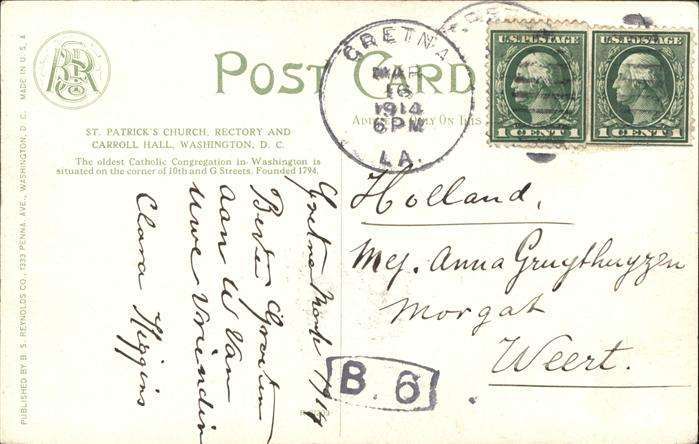 POST CARD
ADDRESS ONLY ON THIS
ST. PATRICK'S CHURCH, RECTORY AND
CARROLL HALL, WASHINGTON, D. C.
The oldest Catholic Congregation in Washington is
situated on the corner of 10th and G Streets. Founded 1794.
PUBLISHED BY B. S. REYNOLDS CO., 1333 PENNA. AVE., WASHINGTON, D. C. MADE IN U. S. A
BSR Co
GRETNA
MAR
16
1914
6 PM
LA.
U.S. POSTAGE
1 CENT 1
U.S. POSTAGE
1 CENT 1
Gretna
Beste Groeten
aan U van
uwe Vriendin
Clara Higgins
Holland,
Mej. Anna Gruythuyzen
Morgat
Weert.
B. 6